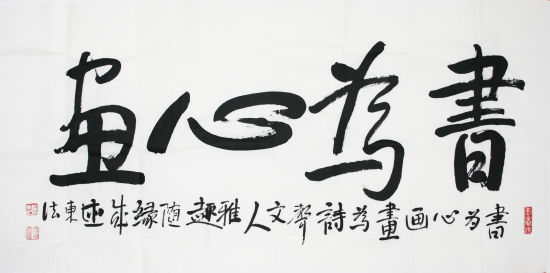 書為心畫
書为心画畫為詩聲文人雅趣随緣成迹東法